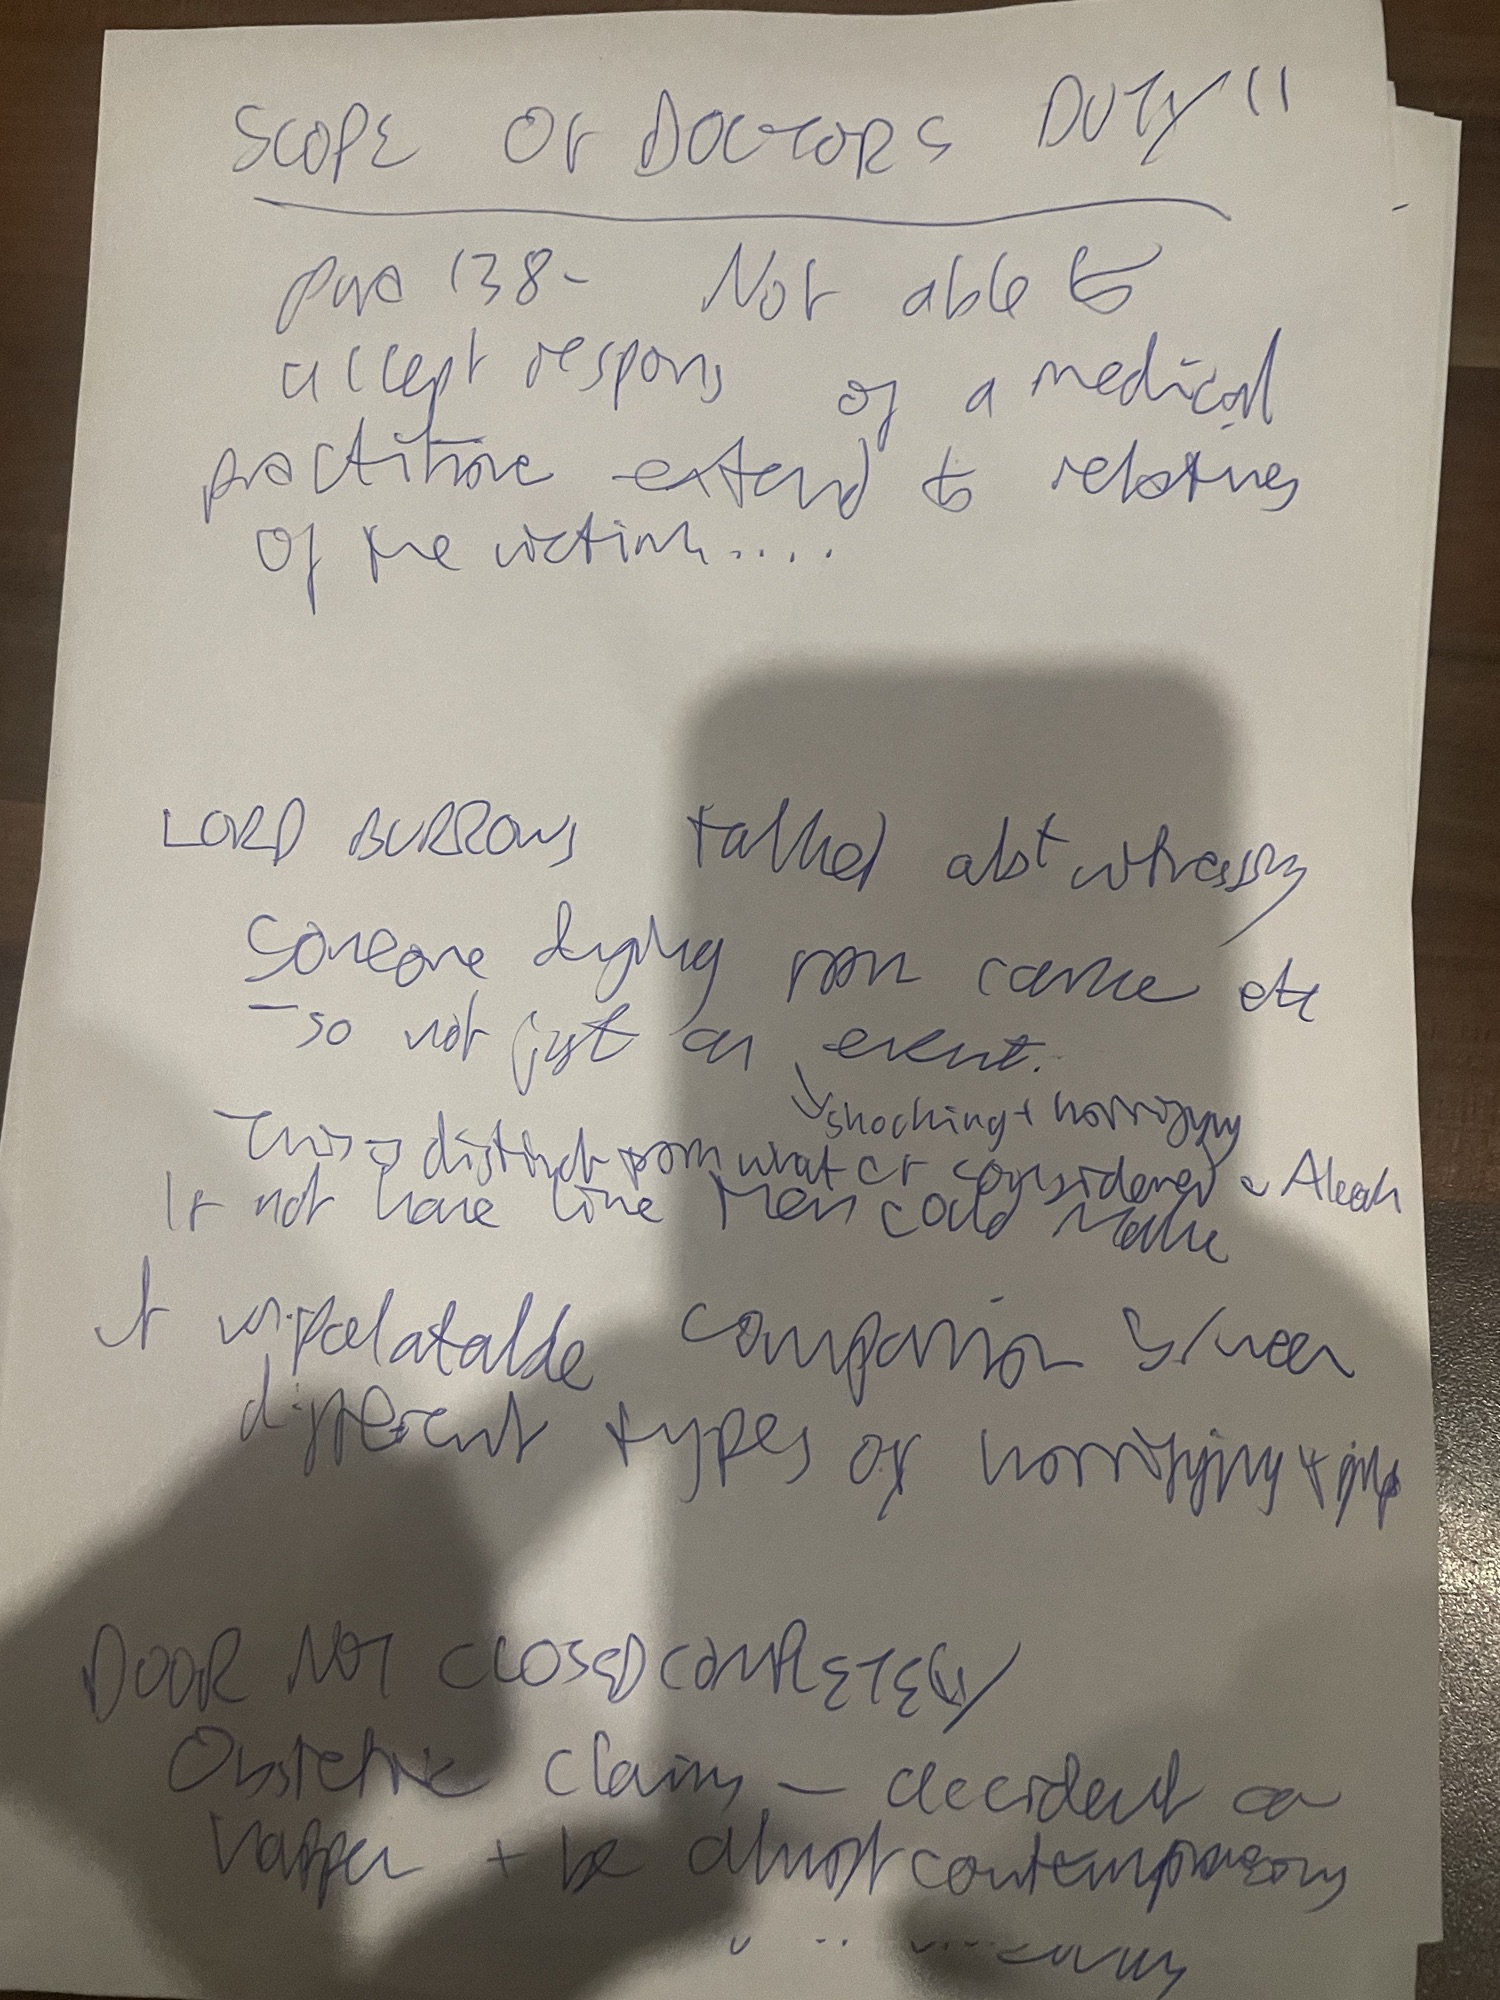 SCOPE OF DOCTORS DUTY "
para 138- Not able to
accept respons of a medical
practitione extend to relatives
of the victim....
LORD BURROWS talked abt witnessing
someone dying from cance etc
- so not just an event.
shocking + horrifying
This is distinct from what ct considered Alcock
If not have line then could make
it unpalatable comparison b/ween
different types of horrifying +
DOOR NOT CLOSED COMPLETELY
Obstetric claims - accident can
happen + be almost contemporaneous